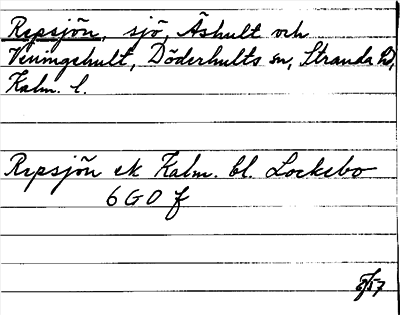 Repsjön, sjö, Äshult och
Veningehult, Döderhults sn, Stranda hd,
Kalm. l.
Repsjön ek Kalm. bl. Lockebo
6 G 0 f